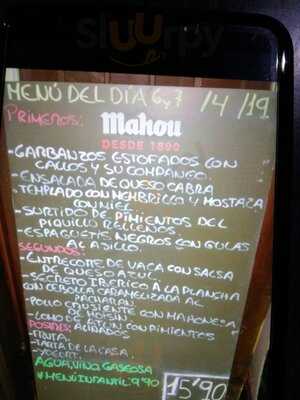 sluurpy
MENÚ DEL DÍA 6 y 7 /4 /19
PRIMEROS:
Mahou
DESDE 1890
-GARBANZOS ESTOFADOS CON
CALLOS Y SU COMPANGO.
-ENSALADA DE QUESO CABRA
TEMPLADO CON MEMBRILLO Y MOSTAZA
CON MIEL
-SURTIDO DE PIMIENTOS DEL
PIQUILLO RELLENOS.
-ESPAGUETIS NEGROS CON GULAS
AL AJILLO
SEGUNDOS:
-ENTRECOTTE DE VACA CON SALSA
DE QUESO AZUL
-SECRETO IBERICO À LA PLANCHA
CON CEBOLLA CARAMELIZADA AL
PACHARAN.
-POLLO CRUJIENTE CON MAHONESA
DE HOISIN
-LOMO DE CON PIMIENTOS
ALIÑADOS
POSTRES:
-FRUTA.
-TARTA DE LA CASA.
-YOGURT.
AGUA, VINO, GASEOSA
MENÚ INFANTIL: 9'90
15'90